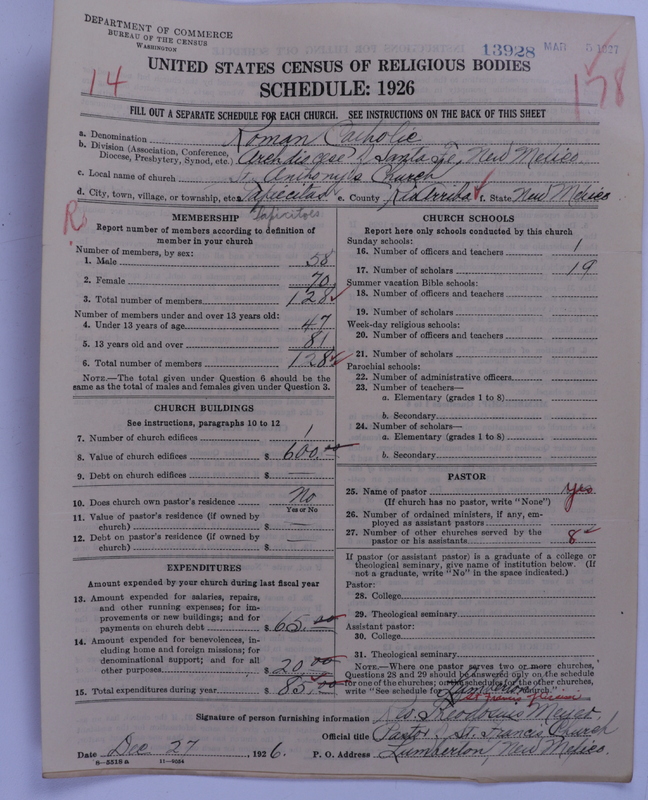 DEPARTMENT OF COMMERCE
BUREAU OF THE CENSUS
WASHINGTON
13928 MAR 5 1927
14
178
UNITED STATES CENSUS OF RELIGIOUS BODIES
SCHEDULE: 1926
FILL OUT A SEPARATE SCHEDULE FOR EACH CHURCH. SEE INSTRUCTIONS ON THE BACK OF THIS SHEET
a. Denomination Roman Catholic
b. Division (Association, Conference, Diocese, Presbytery, Synod, etc.) Archdiocese of Santa Fe, New Mexico
c. Local name of church St. Anthony's Church
d. City, town, village, or township, etc. Tapiecitas e. County Rio Arriba f. State New Mexico
Tapicitoes
R
MEMBERSHIP
Report number of members according to definition of
member in your church
Number of members, by sex:
1. Male 58
2. Female 70
3. Total number of members 128
Number of members under and over 13 years old:
4. Under 13 years of age 47
5. 13 years old and over 81
6. Total number of members 128
NOTE.—The total given under Question 6 should be
same as the total of males and females given under Question 3.
CHURCH BUILDINGS
See instructions, paragraphs 10 to 12
7. Number of church edifices 1
8. Value of church edifices $ 600.00
9. Debt on church edifices $ —
10. Does church own pastor's residence No
Yes or No
11. Value of pastor's residence (if owned by
church) $ —
12. Debt on pastor's residence (if owned by
church) $ —
EXPENDITURES
Amount expended by your church during last fiscal year
13. Amount expended for salaries, repairs,
and other running expenses; for im-
provements or new buildings; and for
payments on church debt $ 65.00
14. Amount expended for benevolences, in-
cluding home and foreign missions; for
denominational support; and for all
other purposes $ 20.00
15. Total expenditures during year $ 85.00
CHURCH SCHOOLS
Report here only schools conducted by this church
Sunday schools:
16. Number of officers and teachers 1
17. Number of scholars 19
Summer vacation Bible schools:
18. Number of officers and teachers
19. Number of scholars
Week-day religious schools:
20. Number of officers and teachers
21. Number of scholars
Parochial schools:
22. Number of administrative officers
23. Number of teachers—
a. Elementary (grades 1 to 8)
b. Secondary
24. Number of scholars—
a. Elementary (grades 1 to 8)
b. Secondary
PASTOR
25. Name of pastor yes
(If church has no pastor, write "None")
26. Number of ordained ministers, if any, em-
ployed as assistant pastors
27. Number of other churches served by the
pastor or his assistants 8
If pastor (or assistant pastor) is a graduate of a college or
theological seminary, give name of institution below. (If
not a graduate, write "No" in the space indicated.)
Pastor:
28. College
29. Theological seminary
Assistant pastor:
30. College
31. Theological seminary
NOTE.—Where one pastor serves two or more churches,
Questions 28 and 29 should be answered only on the schedule
for one of the churches; on the schedules for the other churches,
write "See schedule for Lumberton church."
Signature of person furnishing information Rev. Theodosius Meyer
Official title Pastor, St. Francis Church
Date Dec 27, 1926. P. O. Address Lumberton, New Mexico.
8—5518 a 11—9054